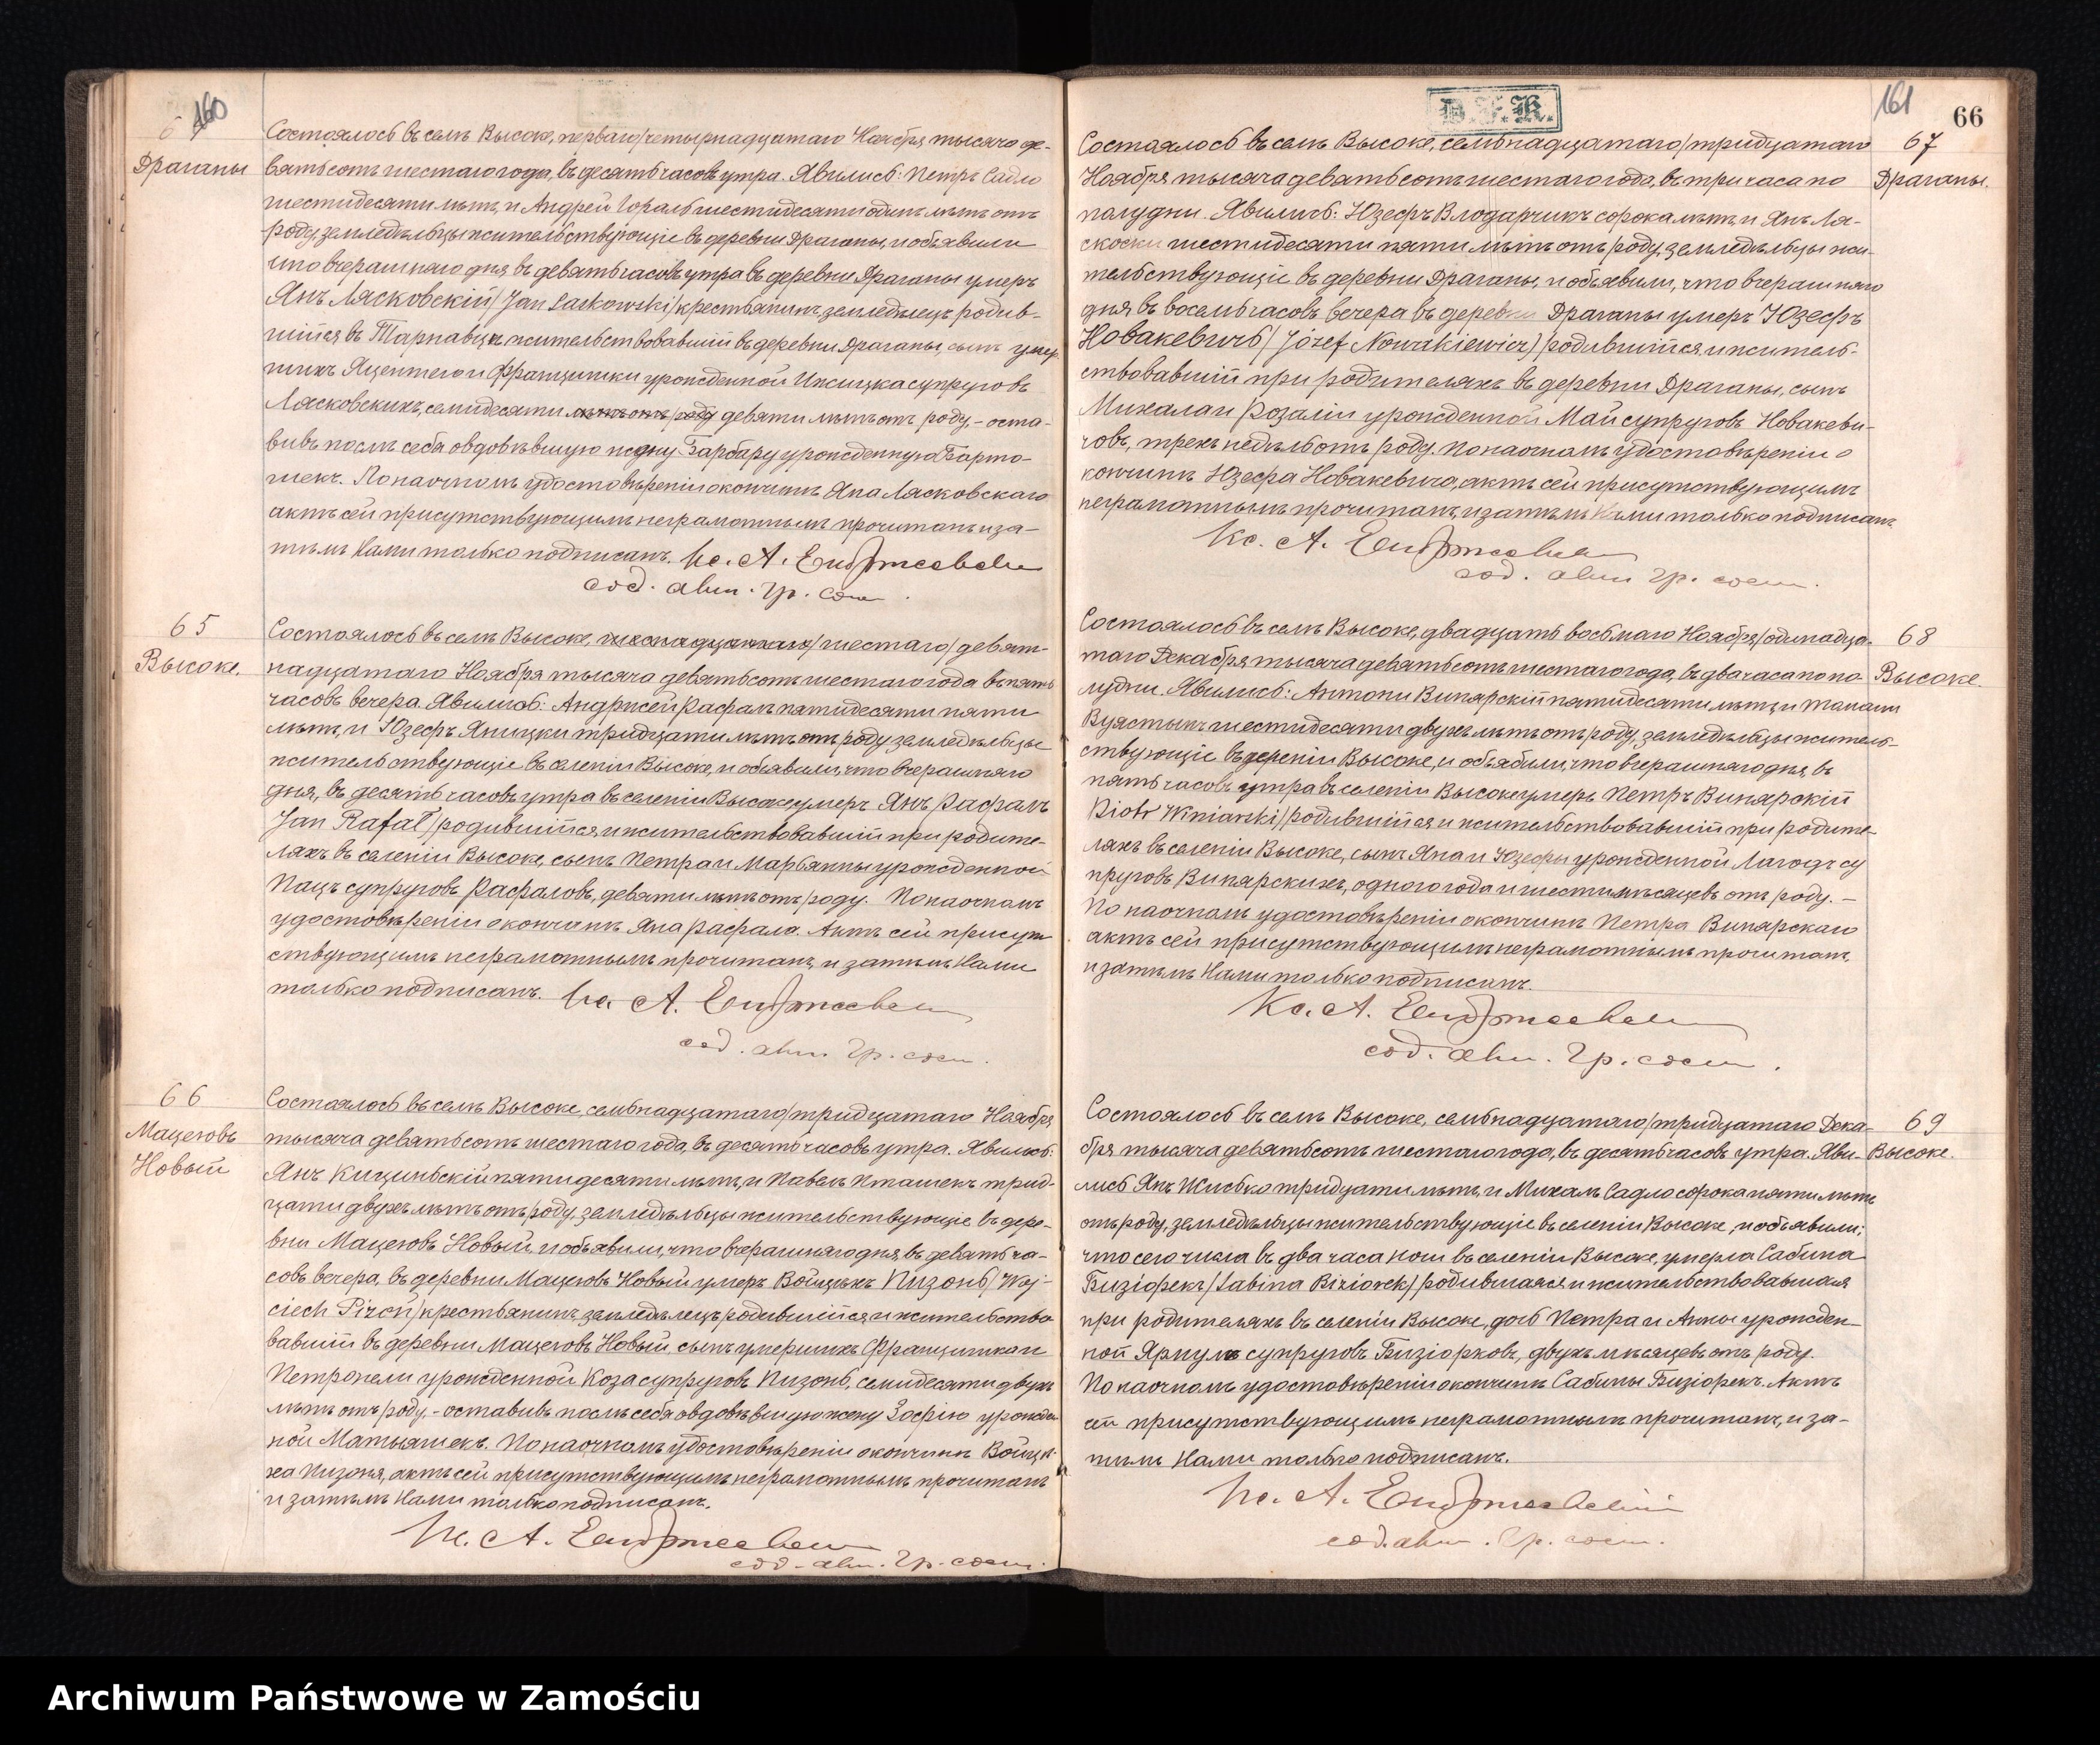 160
Драганы
Состоялось въ селѣ Высоке, перваго/четырнадцатаго Ноября тысяча де-
вятьсотъ шестаго года, въ десять часовъ утра. Явились: Петръ Садло
шестидесяти лѣтъ, и Андрей Гораль шестидесяти одинъ лѣтъ отъ
роду, земледѣльцы жительствующіе въ деревни Драганы, и объявили
что вчерашняго дня въ девять часовъ утра въ деревни Драганы умеръ
Янъ Лясковскій/Jan Laskowski/крестьянинъ земледѣлецъ родив-
шійся въ Тарнавцѣ жительствовавшій въ деревни Драганы, сынъ умер-
шихъ Яцентего и Францишки урожденной супруговъ
Лясковскихъ, семидесяти лѣтъ отъ роду девяти лѣтъ отъ роду, - оста-
вивъ послѣ себя овдовѣвшую жену Барбару урожденную Барто-
шекъ. По наочномъ удостовѣреніи о кончинѣ Яна Лясковскаго
актъ сей присутствующимъ неграмотнымъ прочитанъ и за-
тѣмъ Нами только подписанъ. Кс. А.
сод. акт. гр. сост.
65
Высоке.
Состоялось въ селѣ Высоке, /шестаго/девят-
надцатаго Ноября тысяча девятьсотъ шестаго года въ пять
часовъ вечера. Явились: Андржей Рафалъ пятидесяти пяти
лѣтъ, и Юзефъ Яницки тридцати лѣтъ отъ роду земледѣльцы
жительствующіе въ селеніи Высоке, и объявили, что вчерашняго
дня, въ десять часовъ утра въ селеніи Высоке умеръ Янъ Рафалъ
Jan Rafał/родившійся и жительствовавшій при родите-
ляхъ въ селеніи Высоке, сынъ Петра и Марьянны урожденной
Пацъ супруговъ Рафаловъ, девяти лѣтъ отъ роду. По наочномъ
удостовѣреніи о кончинѣ Яна Рафала. Актъ сей присут
ствующимъ неграмотнымъ прочитанъ, и затѣмъ Нами
только подписанъ. Кс. А.
сод. акт. гр. сост.
66
Мацеювъ
Новый
Состоялось въ селѣ Высоке, семьнадцатаго/тридцатаго Ноября
тысяча девятьсотъ шестаго года, въ десять часовъ утра. Явились:
Янъ Кициньскій пятидесяти лѣтъ, и Павелъ Пташекъ трид-
цати двухъ лѣтъ отъ роду, земледѣльцы жительствующіе въ дере-
вни Мацеювъ Новый, и объявили, что вчерашняго дня, въ девять ча-
совъ вечера, въ деревни Мацеювъ Новый умеръ Войцѣхъ Пизонь/Woj-
ciech Pizoń/крестьянинъ, земледѣлецъ родившійся и жительство
вавшій въ деревни Мацеювъ Новый, сынъ умершихъ Францишка и
Петронели урожденной Коза супруговъ Пизонь, семидесяти двухъ
лѣтъ отъ роду, - оставивъ послѣ себя овдовѣвшую жену Зофію урожден
ной Матыяшекъ. По наочномъ удостовѣреніи о кончинѣ Войцѣ-
ха Пизоня, актъ сей присутствующимъ неграмотнымъ прочитанъ
и затѣмъ Нами только подписанъ.
Кс. А.
сод. акт. гр. сост.
161
66
67
Драганы.
Состоялось въ селѣ Высоке, семьнадцатаго/тридцатаго
Ноября тысяча девятьсотъ шестаго года, въ три часа по
полудни. Явились: Юзефъ Влодарчикъ сорока лѣтъ, и Янъ Ля-
скоски шестидесяти пяти лѣтъ отъ роду, земледѣльцы жи-
тельствующіе въ деревни Драганы, и объявили, что вчерашняго
дня въ восемь часовъ вечера въ деревни Драганы умеръ Юзефъ
Новакевичь/Józef Nowakiewicz/родившійся и житель-
ствовавшій при родителяхъ въ деревни Драганы, сынъ
Михала и Розаліи урожденной Май супруговъ Новакеви-
човъ, трехъ недѣль отъ роду. По наочномъ удостовѣреніи о
кончинѣ Юзефа Новакевича, актъ сей присутствующимъ
неграмотнымъ прочитанъ, и затѣмъ Нами только подписанъ.
Кс. А.
сод. акт. гр. сост.
68
Высоке.
Состоялось въ селѣ Высоке, двадцать восьмаго Ноября/одинадца-
таго Декабря тысяча девятьсотъ шестаго года, въ два часа по по-
лудни. Явились: Антони Винярскій пятидесяти лѣтъ, и
шестидесяти двухъ лѣтъ отъ роду, земледѣльцы житель-
ствующіе въ селеніи Высоке, и объявили, что вчерашняго дня, въ
пять часовъ утра въ селеніи Высоке умеръ Петръ Винярскій
Piotr Winiarski/родившійся и жительствовавшій при родите-
ляхъ въ селеніи Высоке, сынъ Яна и Юзефы урожденной Лагодъ су
пруговъ Винярскихъ, одного года и шести мѣсяцевъ отъ роду. -
По наочномъ удостовѣреніи о кончинѣ Петра Винярскаго
актъ сей присутствующимъ неграмотнымъ прочитанъ,
и затѣмъ Нами только подписанъ.
Кс. А.
сод. акт. гр. сост.
69
Высоке.
Состоялось въ селѣ Высоке, семьнадцатаго/тридцатаго Дека-
бря тысяча девятьсотъ шестаго года, въ десять часовъ утра. Яви-
лись Янъ Жисько тридцати лѣтъ, и Михалъ Садло сорока пяти лѣтъ
отъ роду, земледѣльцы жительствующіе въ селеніи Высоке, и объявили:
что сего числа въ два часа ночи въ селеніи Высоке, умерла Сабина
Бизіорекъ/Sabina Biziorek/родившаяся и жительствовавшая
при родителяхъ въ селеніи Высоке, дочь Петра и Анны урожден-
ной супруговъ Бизіорковъ, двухъ мѣсяцевъ отъ роду.
По наочномъ удостовѣреніи о кончинѣ Сабины Бизіорекъ. Актъ
сей присутствующимъ неграмотнымъ прочитанъ, и за-
тѣмъ Нами только подписанъ.
Кс. А.
сод. акт. гр. сост.
Archiwum Państwowe w Zamościu